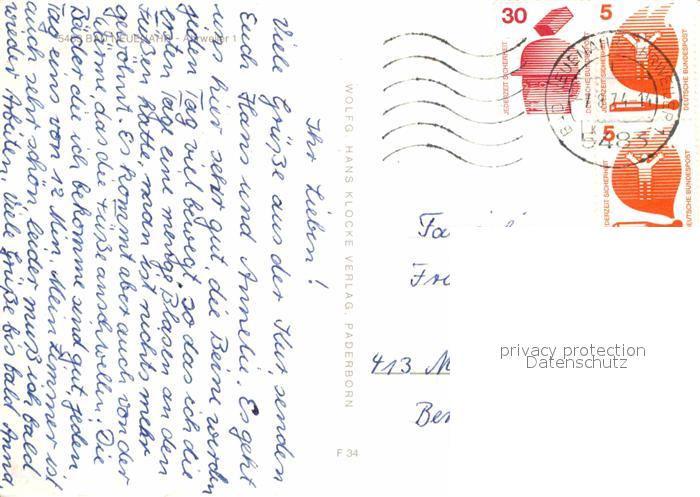 Ihr Lieben!
Viele Grüße aus der Kur, senden
Euch Hans und Annelie. Es geht
uns hier sehr gut, die Beine werden
jeden Tag viel bewegt, so das ich die
ersten Tage eine menge Blasen an den
Füßen hatte, man ist nichts mehr
gewöhnt. Es kommt aber auch von der
Wärme das die Füße anschwellen. Die
Bäder die ich bekomme sind gut, jeden
Tag eins von 12 Min. Mein Zimmer ist
auch sehr schön leider muß ich bald
wieder Arbeiten. Viele Grüße bis bald Anna
5483 BAD NEUENAHR - Ahrweiler 1
WOLFG. HANS KLOCKE VERLAG, PADERBORN
F 34
30
JEDERZEIT SICHERHEIT
DEUTSCHE BUNDESPOST
5
DEUTSCHE BUNDESPOST
5
JEDERZEIT SICHERHEIT
DEUTSCHE BUNDESPOST
5483
413 M
privacy protection
Datenschutz